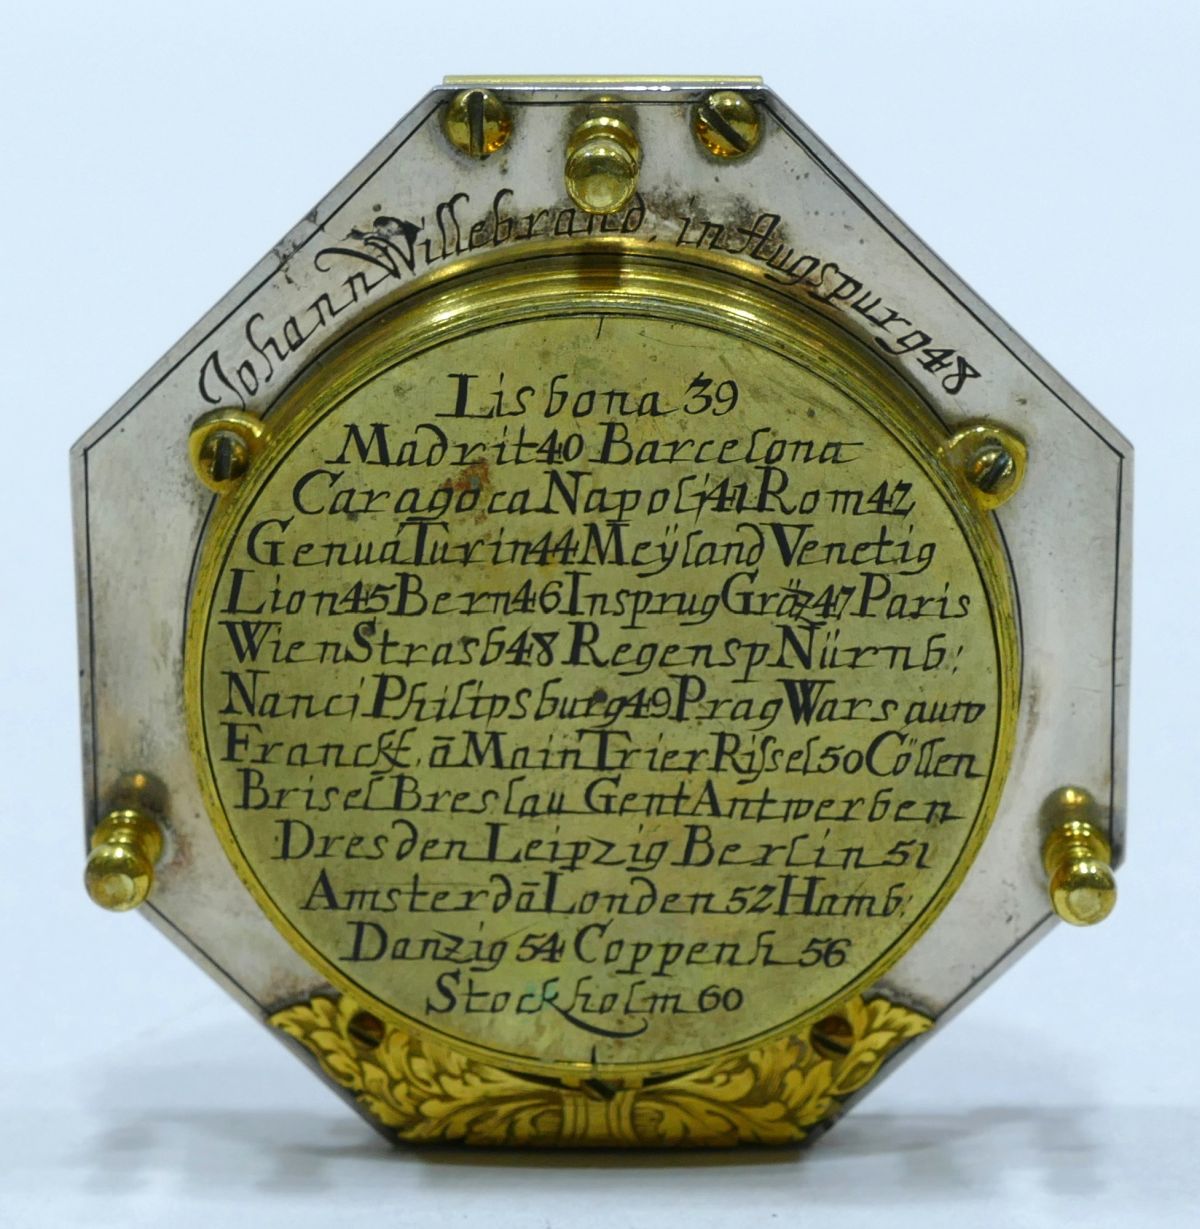 Johann Willebrand. in Augspurg 48
Lisbona 39
Madrit 40 Barcelona
Caragoca Napoli 41 Rom 42
Genua Turin 44 Meÿland Venetig
Lion 45 Bern 46 Insprug Gräz 47 Paris
Wien Strasb 48 Regensp Nürnb:
Nanci Philipsburg 49 Prag Warsauw
Franckf. ā Main Trier Rissel 50 Cöllen
Brisel Breslau Gent Antwerben
Dresden Leipzig Berlin 51
Amsterdā Londen 52 Hamb:
Danzig 54 Coppenh 56
Stockholm 60